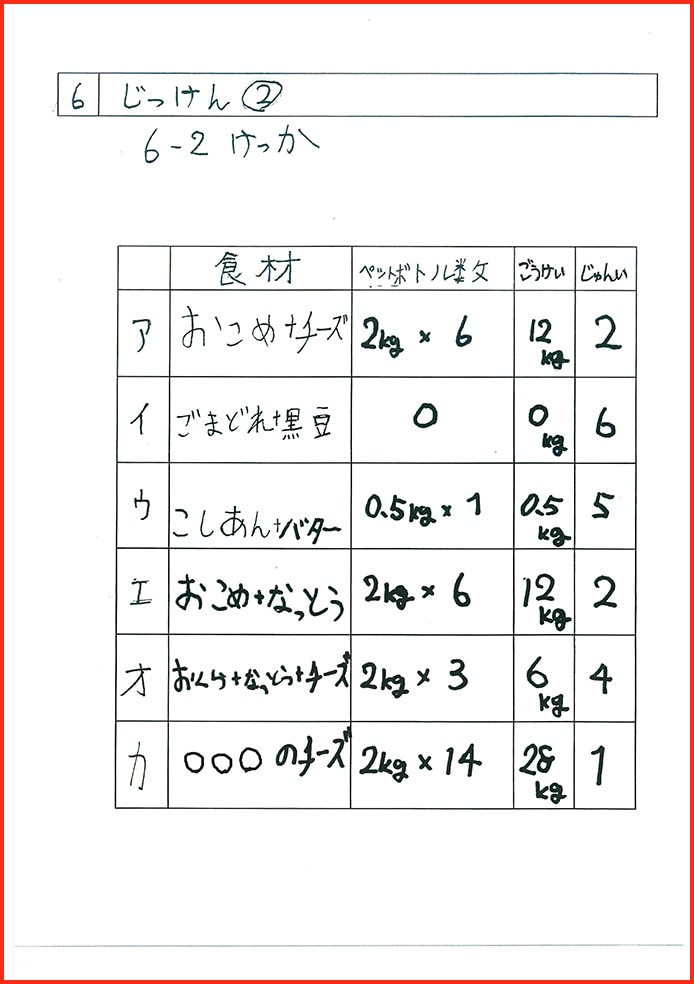 6 じっけん②
6-2 けっか
食材 ペットボトル数 ごうけい じゅんい
ア おこめ+チーズ 2kg × 6 12kg 2
イ ごまどれ+黒豆 0 0kg 6
ウ こしあん+バター 0.5kg × 1 0.5kg 5
エ おこめ+なっとう 2kg × 6 12kg 2
オ +なっとう+チーズ 2kg × 3 6kg 4
カ ○○○のチーズ 2kg × 14 28kg 1